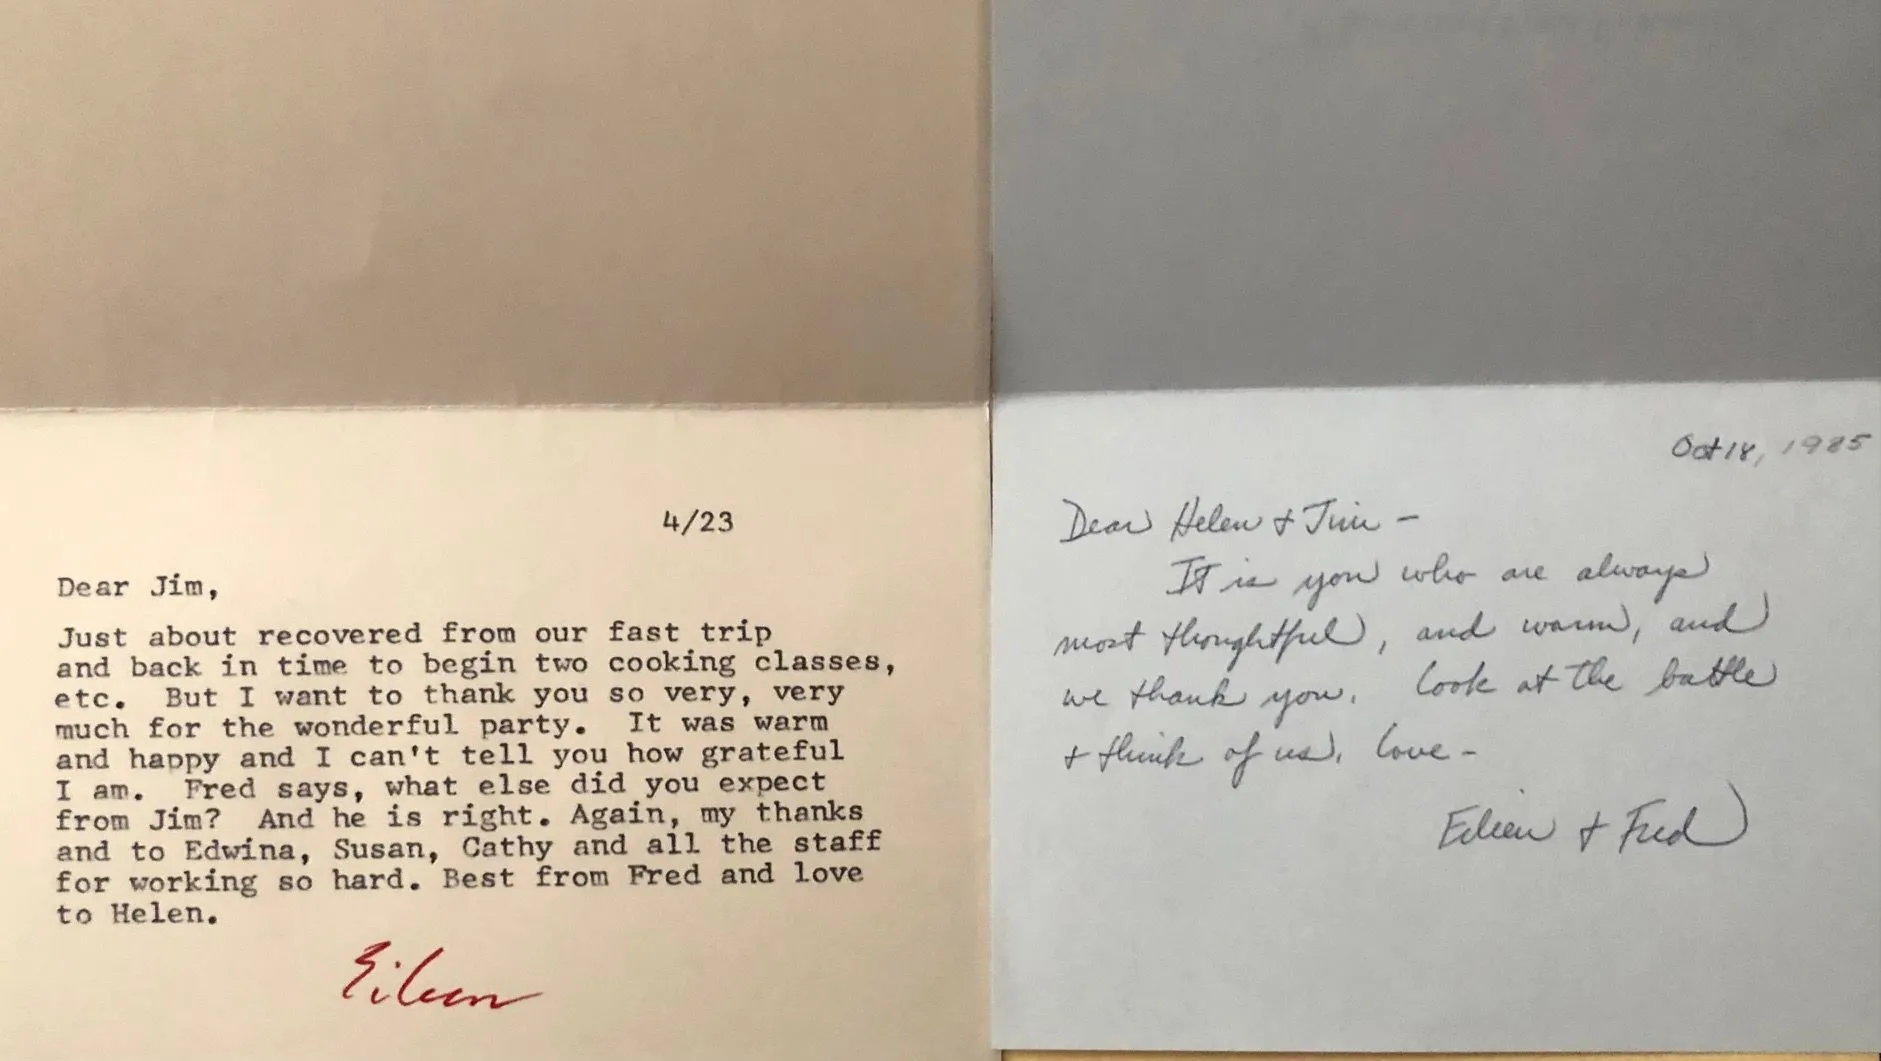 4/23
Dear Jim,
Just about recovered from our fast trip
and back in time to begin two cooking classes,
etc. But I want to thank you so very, very
much for the wonderful party. It was warm
and happy and I can't tell you how grateful
I am. Fred says, what else did you expect
from Jim? And he is right. Again, my thanks
and to Edwina, Susan, Cathy and all the staff
for working so hard. Best from Fred and love
to Helen.
Eileen
Oct 18, 1985
Dear Helen + Jim -
It is you who are always
most thoughtful, and warm, and
we thank you. Look at the bottle
+ think of us. Love -
Eileen + Fred